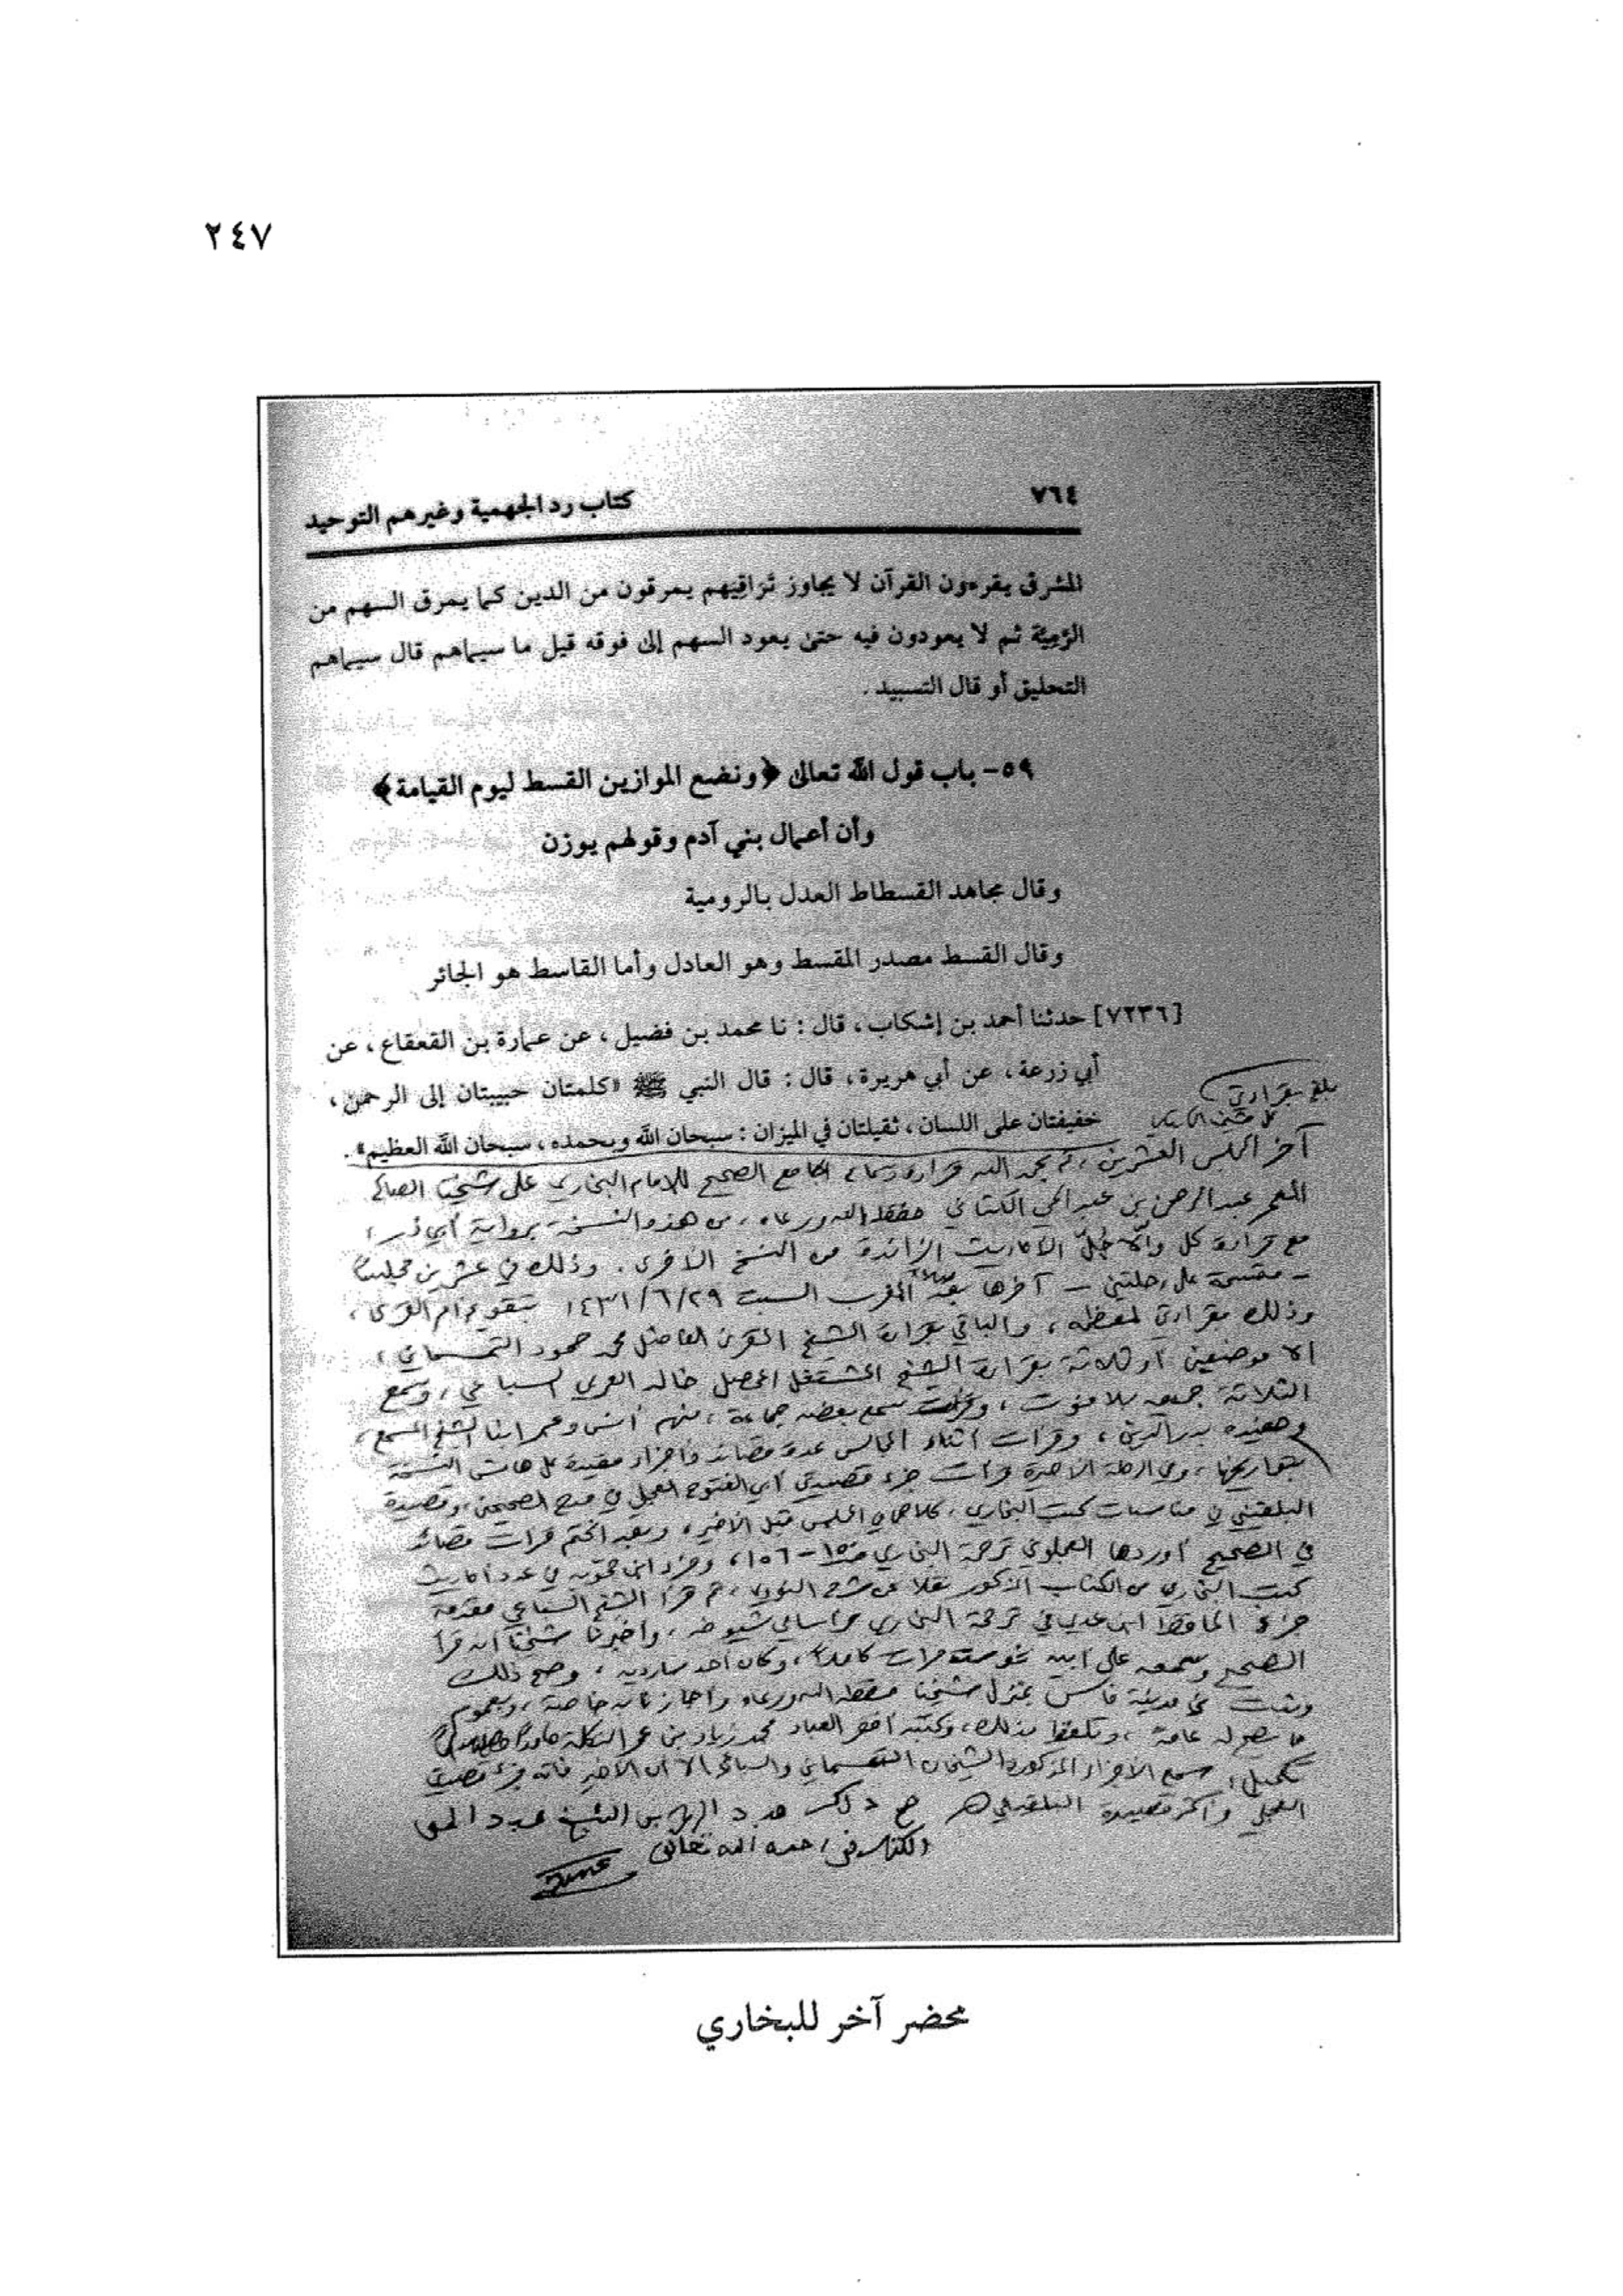 ٢٤٧
٧٦٤
كتاب رد الجهمية وغيرهم التوحيد
المشرق يقرءون القرآن لا يجاوز تراقيهم يمرقون من الدين كما يمرق السهم من
الرمية ثم لا يعودون فيه حتى يعود السهم إلى فوقه قيل ما سيماهم قال سيماهم
التحليق أو قال التسبيد.
٥٩- باب قول الله تعالى ﴿ونضع الموازين القسط ليوم القيامة﴾
وأن أعمال بني آدم وقولهم يوزن
وقال مجاهد القسطاط العدل بالرومية
وقال القسط مصدر المقسط وهو العادل وأما القاسط هو الجائر
[٧٢٣٦] حدثنا أحمد بن إشكاب، قال: نا محمد بن فضيل، عن عمارة بن القعقاع، عن
أبي زرعة، عن أبي هريرة، قال: قال النبي ﷺ «كلمتان حبيبتان إلى الرحمن،
خفيفتان على اللسان، ثقيلتان في الميزان: سبحان الله وبحمده، سبحان الله العظيم».
بلغ بقراءتي
على شيخنا الكتاني
آخر المجلس العشرين، تم بحمد الله قراءة وسماع الجامع الصحيح للإمام البخاري على شيخنا الصالح
المعمر عبد الرحمن بن عبد الحي الكتاني حفظه الله ورعاه، من هذه النسخة برواية أبي ذر،
مع قراءة كل وإلا جل الأحاديث الزائدة من النسخ الأخرى. وذلك في عشرين مجلسا
- مقسمة على رحلتين - آخرها بعد صلاة المغرب السبت ١٤٣١/٦/٢٩ بتقويم أم القرى،
وذلك بقراءتي لمعظمه، والباقي بقراءة الشيخ المقرئ الفاضل محمد حمود التمسماني،
إلا موضعين أو ثلاثة بقراءة الشيخ المشتغل المحصل خالد السباعي، وسمع
الثلاثة جميعه بلا فوت، وسمع بعضه جماعة، منهم أنس وعمر ابنا الشيخ المسمع،
وحفيده بدر الدين، وقرأت أثناء المجالس عدة قصائد وأجزاء مقيدة على هامش النسخة
بتواريخها، وفي الرحلة الأخيرة قرأت جزء قصيدتي أبي الفتوح العجلي في مدح الصحيحين، وقصيدة
البلقيني في مناسبات كتب البخاري، كلاهما في المجلس قبل الأخير، وبعد الختم قرأت قصائد
في الصحيح أوردها العجلوني ترجمة البخاري ١٥٠-١٥٦، وجزء ابن حمويه في عدد أحاديث
كتب البخاري من الكتاب المذكور نقلا عن شرح النووي، ثم قرأ الشيخ السباعي مقدمة
جزء الحافظ ابن عدي في ترجمة البخاري من أسامي شيوخه، وأخبرنا شيخنا أنه قرأ
الصحيح وسمعه على أبيه نحو ست مرات كاملا، وكان أحد سارديه، وصح ذلك
وثبت في مدينة فاس بمنزل شيخنا حفظه الله ورعاه وأجازنا به خاصة، وبعموم
ما تصح له عامة، وتلفظ بذلك، وكتبه أفقر العباد محمد زياد بن عمر التكلة حامدا
تكميل: سمع الأجزاء المذكورة الشيخان التمسماني والسباعي إلا أن الأخير فاته جزء قصيدتي
العجلي وأكثر قصيدة البلقيني صح ذلك عبد الرحمن بن الشيخ عبد الحي
الكتاني رحمه الله تعالى
محضر آخر للبخاري